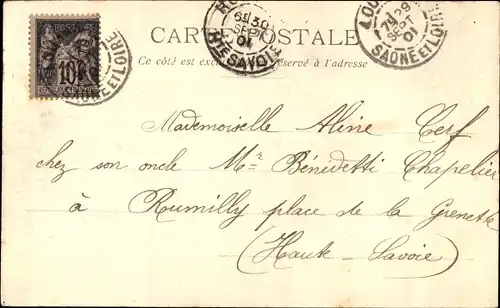 POSTES
10
SAONE ET LOIRE
6E 30
SEPT
01
HTE SAVOIE
LOU
7E 29
SEPT
01
SAONE ET LOIRE
CARTE POSTALE
Ce côté est exclusivement réservé à l'adresse
Mademoiselle Aline Cerf
chez son oncle Mr Bénédetti Chapelier
à Rumilly place de la Grenette
(Haute-Savoie)